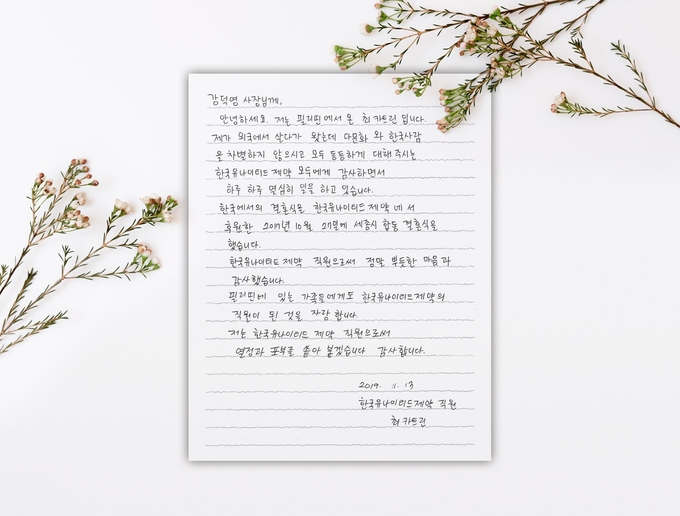 강덕영 사장님께,
안녕하세요. 저는 필리핀에서 온 최 카트린 입니다.
제가 외국에서 살다가 왔는데 다문화 와 한국사람
을 차별하지 않으시고 모두 동등하게 대해 주시는
한국유나이티드 제약 모두에게 감사하면서
하루 하루 열심히 일을 하고 있습니다.
한국에서의 결혼식을 한국유나이티드 제약 에 서
후원한 2017년 10월 27일에 세종시 합동 결혼식을
했습니다.
한국유나이티드 제약 직원으로써 정말 뿌듯한 마음과
감사했습니다.
필리핀에 있는 가족들에게도 한국유나이티드제약의
직원이 된 것을 자랑 합니다.
저는 한국유나이티드 제약 직원으로써
열정과 포부를 쏟아 붙겠습니다 감사합니다.
2019. 11. 13
한국유나이티드제약 직원
최 카트린